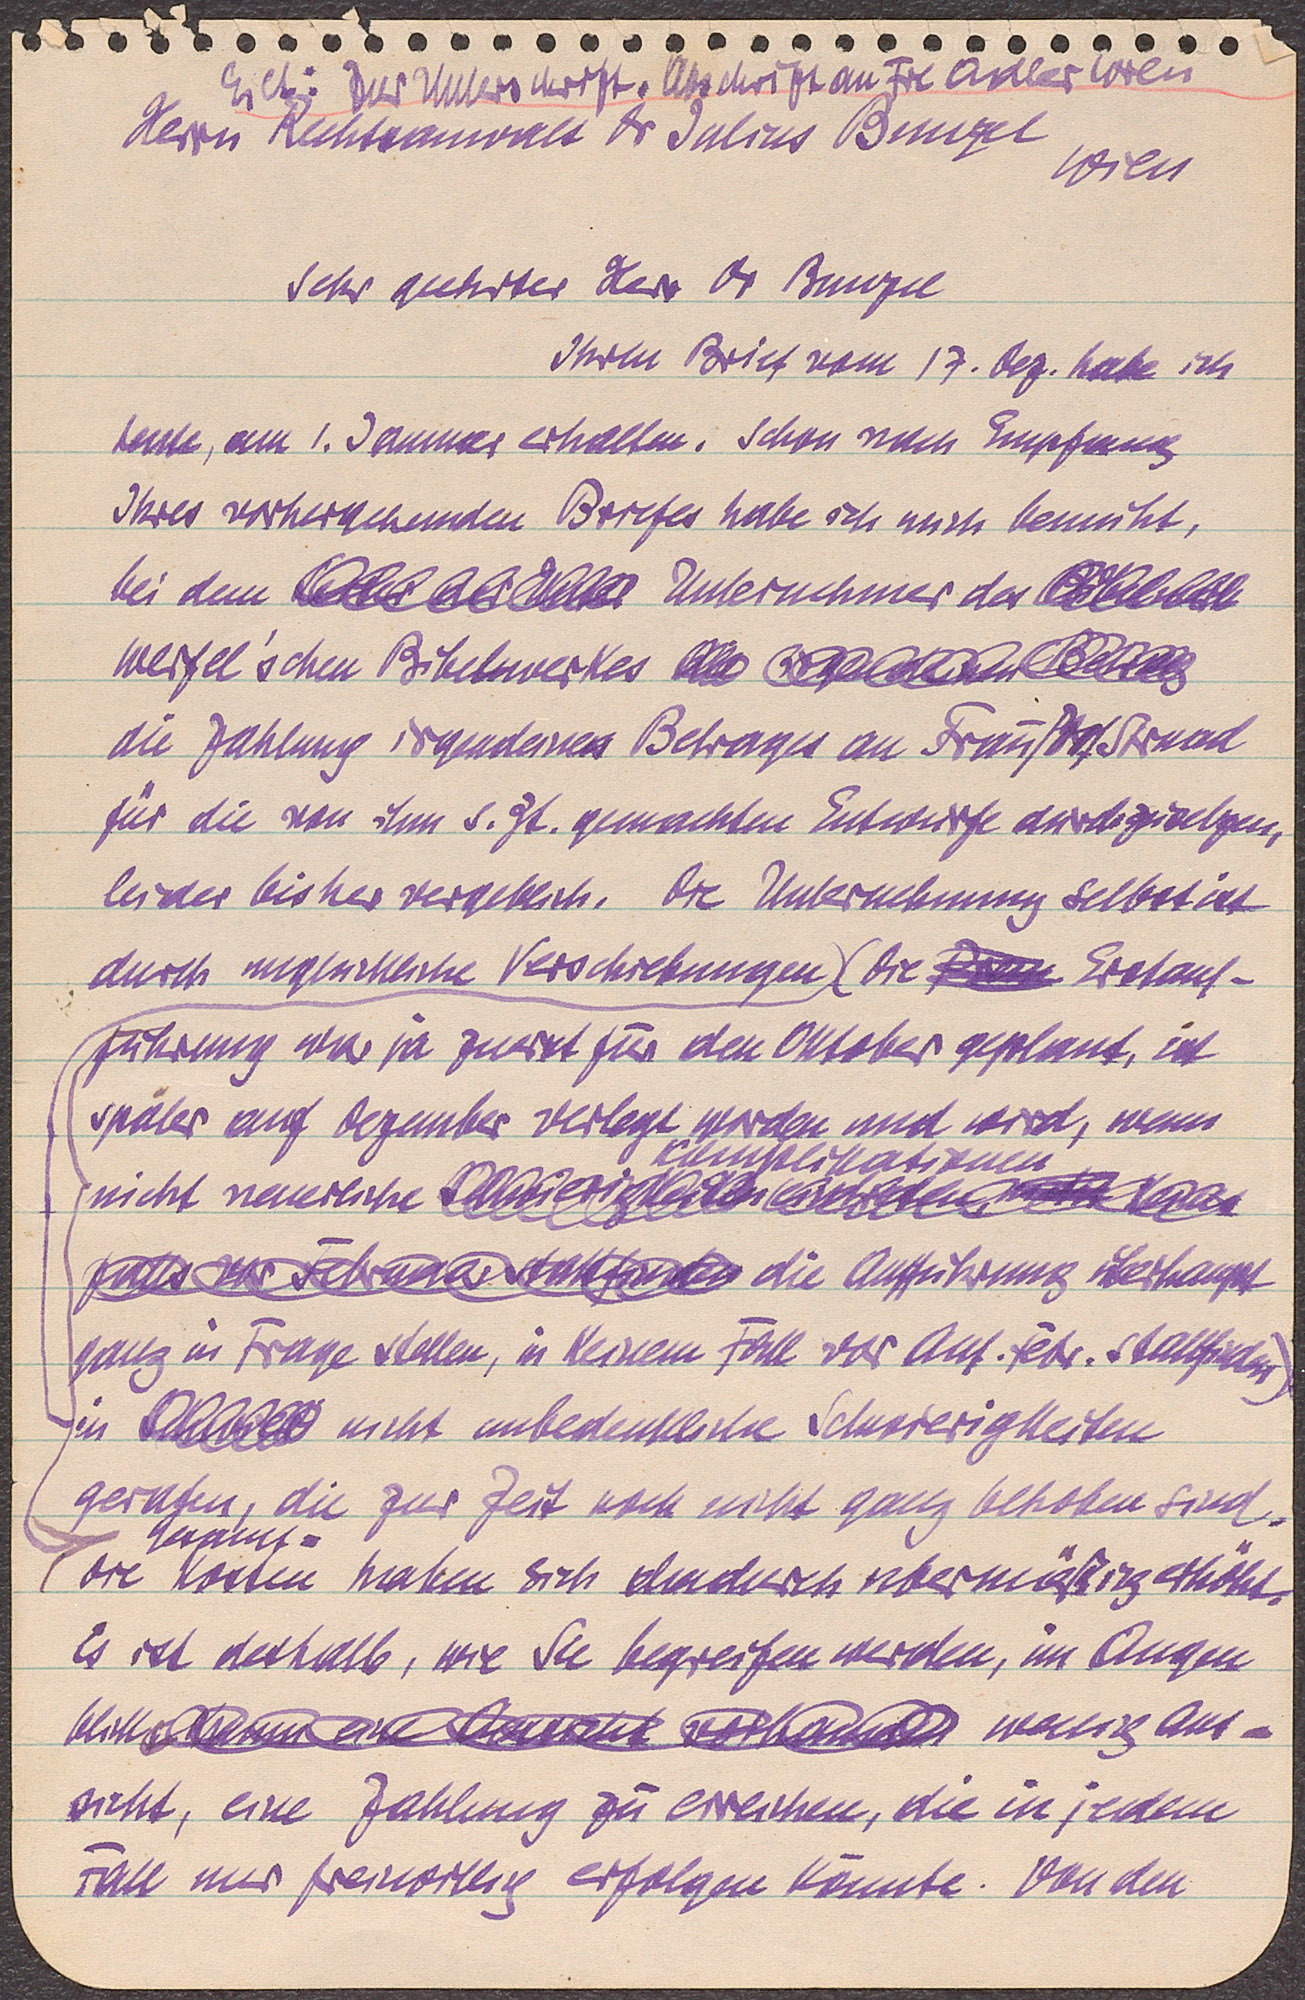 Eilt: Zur Unterschrift. Abschrift an Frl Adler Wien
Herrn Rechtsanwalt Dr Julius Bunzel
Wien
Sehr geehrter Herr Dr Bunzel
Ihren Brief vom 17. Dez. habe ich
heute, am 1. Januar erhalten. Schon nach Empfang
Ihres vorhergehenden Briefes habe ich mich bemüht,
bei dem Unternehmer des
Werfel'schen Bibelwerkes
die Zahlung irgendeines Betrages an Frau Strnad
für die von ihm s. Zt. gemachten Entwürfe durchzusetzen,
leider bisher vergeblich. Die Unternehmung selbst ist
durch unglückliche Verschiebungen (die Erstauf-
führung war ja zuerst für den Oktober geplant, ist
später auf Dezember verlegt worden und wird, wenn
nicht neuerliche Komplikationen
die Aufführung überhaupt
ganz in Frage stellen, in keinem Fall vor Anf. Febr. stattfinden)
in nicht unbedenkliche Schwierigkeiten
geraten, die zur Zeit noch nicht ganz behoben sind.
Die Gesamt=
kosten haben sich dadurch übermäßig erhöht.
Es ist deshalb, wie Sie begreifen werden, im Augen
blick wenig Aus=
sicht, eine Zahlung zu erreichen, die in jedem
Fall nur freiwillig erfolgen könnte. Von den